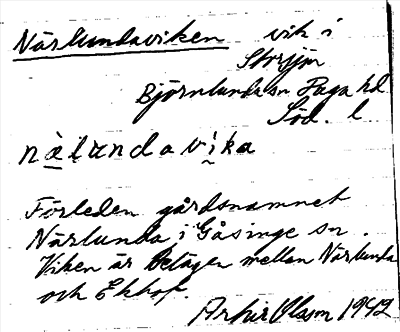 Närlundaviken vik i
Storsjön
Björnlunda sn Daga hd
Söd. l
nàlundavika
Förleden gårdsnamnet
Närlunda i Gåsinge sn.
Viken är belägen mellan Närlunda
och Ekhof.
Olsson 1942